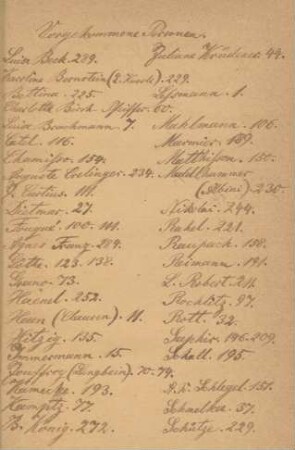 Vorgekommene Personen.
Luise Beck 289.
Karoline Bernstein (2. Kirch). 229.
Bettina. 225.
Charlotte Birch Pfeiffer. 60.
Luise Brachmann 7.
Catel. 116.
Chamisso. 154.
Auguste Crelinger. 234.
J. Curtius. 111.
Dietmar. 27.
Fouqué. 100. 111.
Agnes Franz. 284.
Göthe. 123. 138.
73.
Haenel. 252.
Heun (Clauren). 11.
Hitzig. 135.
Immermann. 15.
(Langbein). 70. 74.
193.
Kamptz. 77.
B. König. 272.
Juliane Krüdener. 44.
Lessmann. 1.
Mahlmann. 106.
Marmier. 189.
Matthisson. 150.
(Albini) 230.
Nikolai. 244.
Rahel. 221.
Raupach. 158.
Reimann. 191.
L. Robert. 211.
Rochlitz. 97.
Rott. 32.
Saphir. 186. 209.
Schall. 195.
Schlegel. 151.
Schmelka. 57.
Schütze. 229.